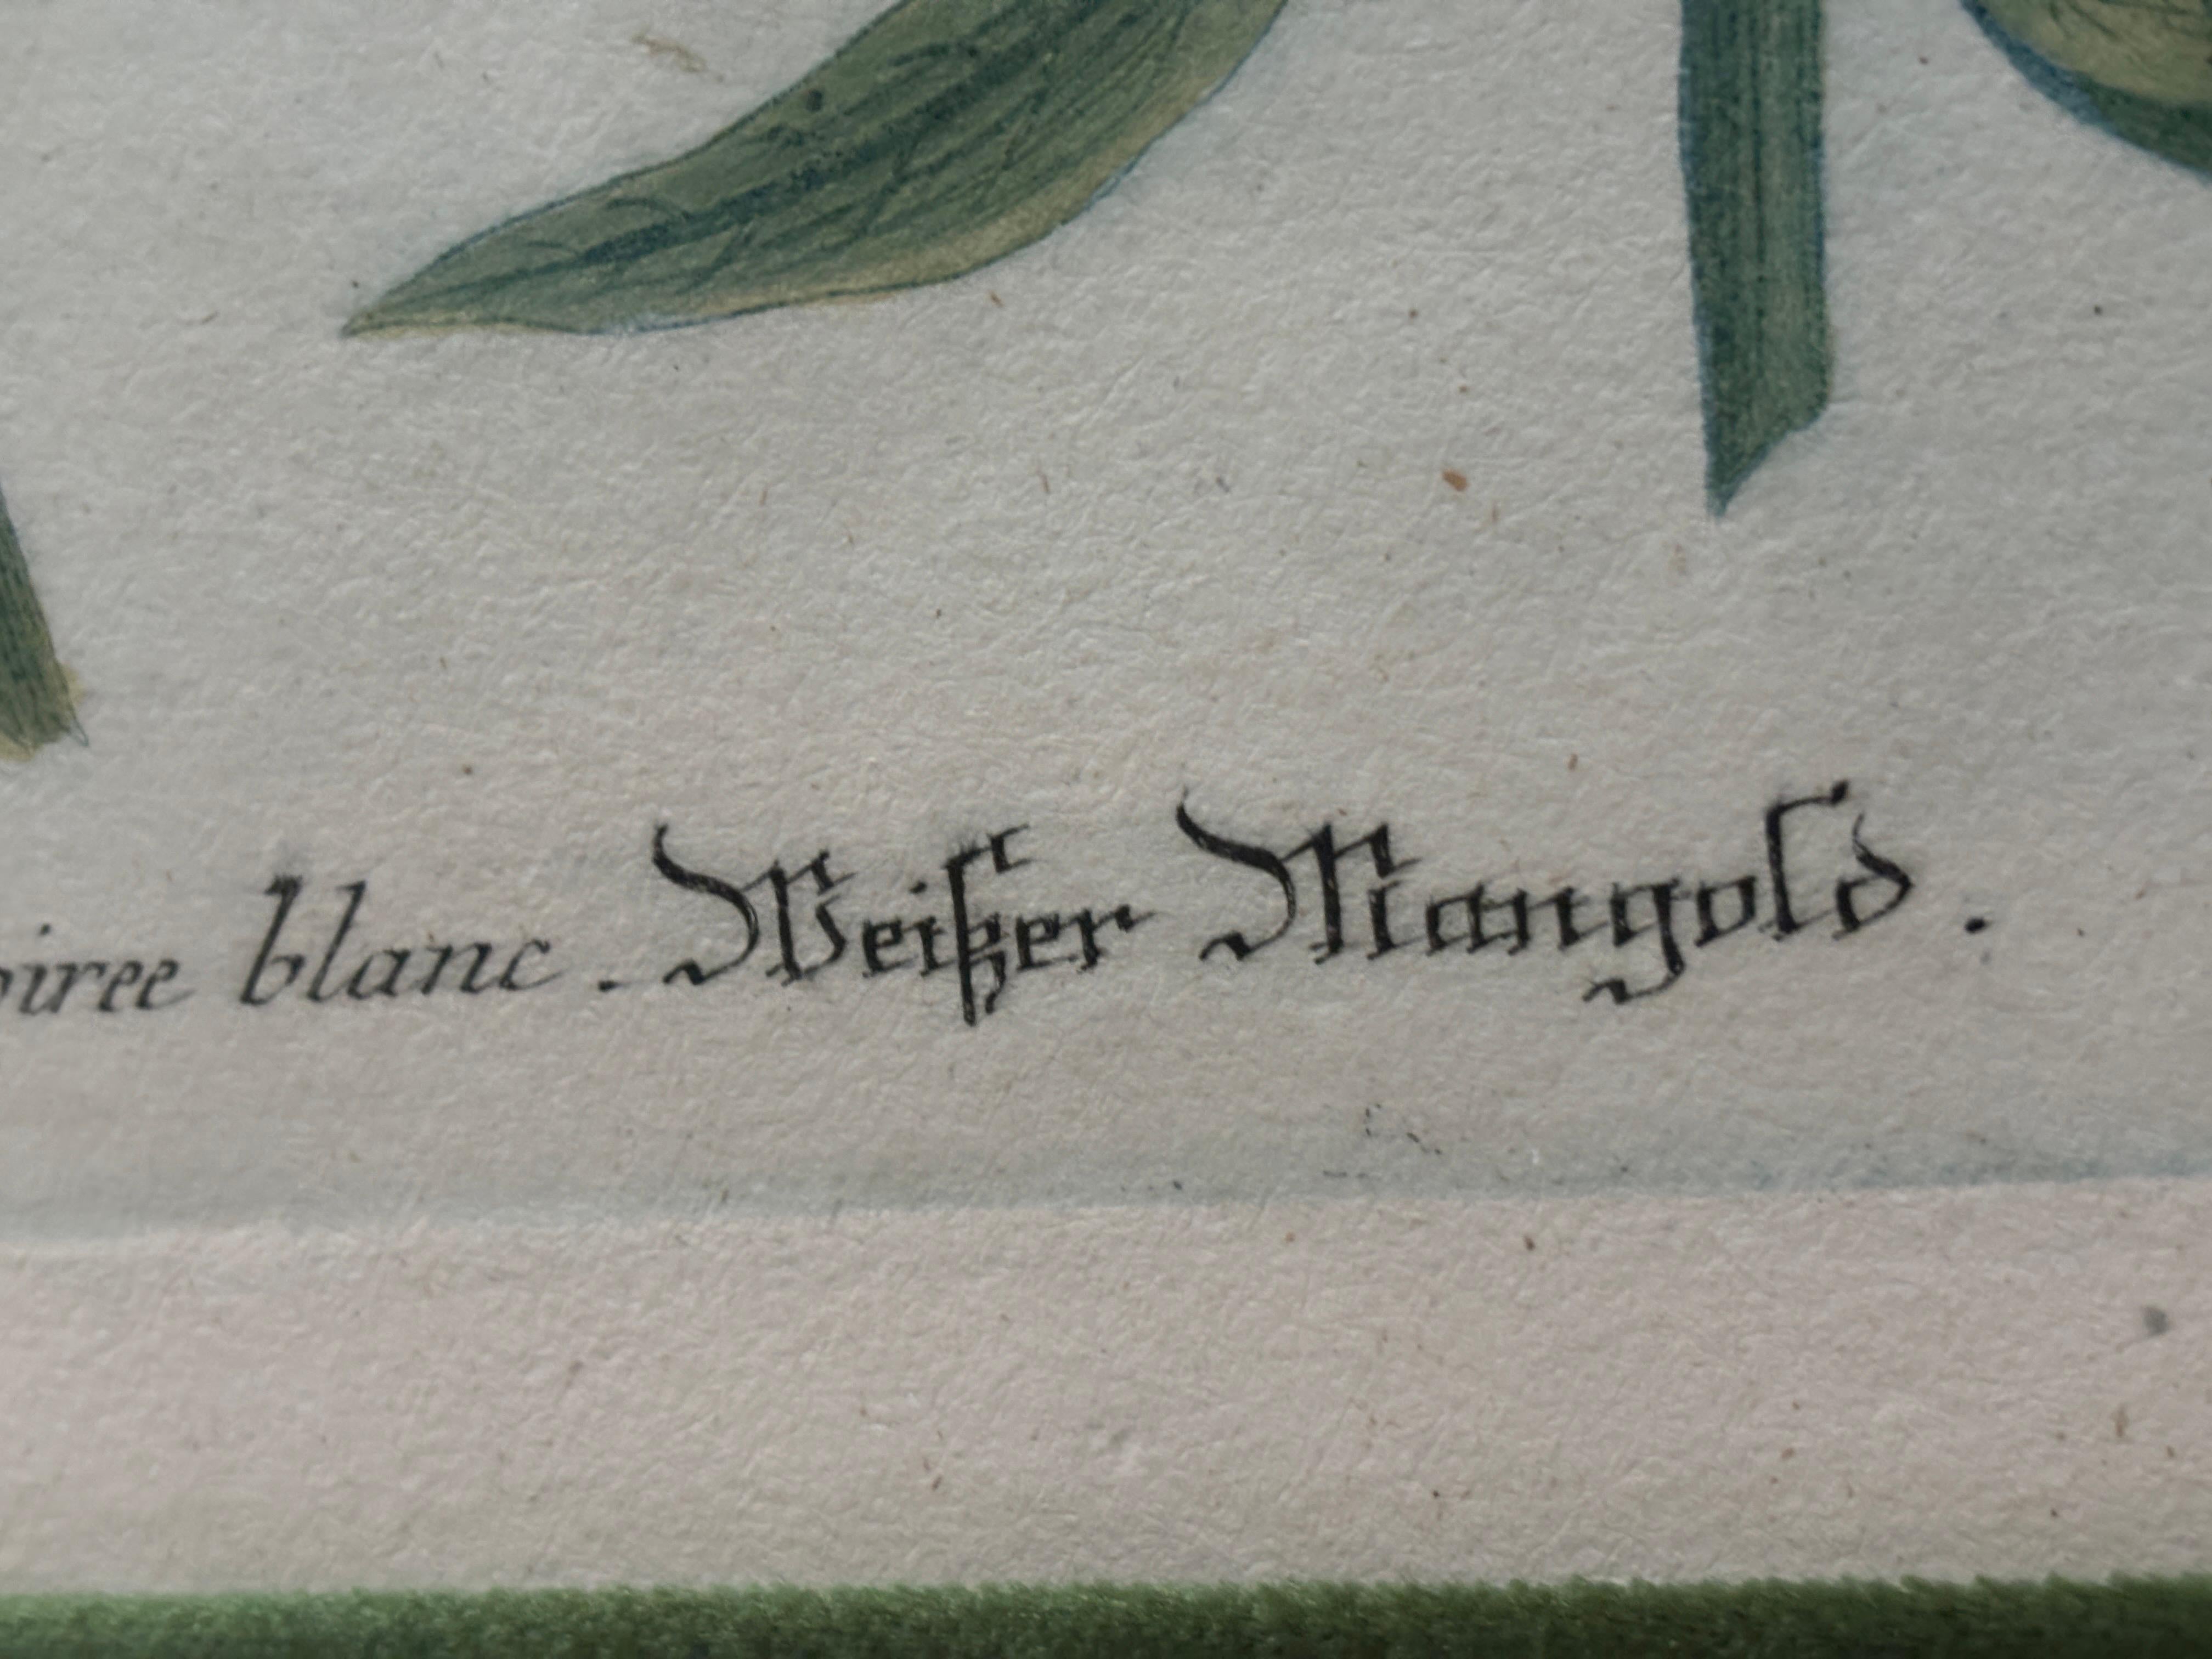 oiree blanc. Weißer Mangold.